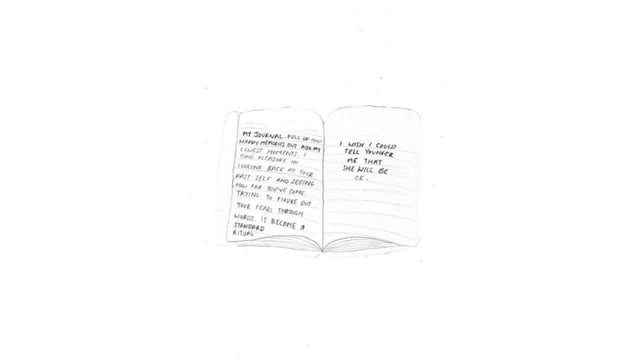 MY JOURNAL. FULL OF MOST
HAPPY MEMORIES BUT ALSO MY
LOWEST MOMENTS. I
FIND PLEASURE IN
LOOKING BACK AT YOUR
PAST SELF AND SEEING
HOW FAR YOU'VE COME.
TRYING TO FIGURE OUT
YOUR FEARS THROUGH
WORDS. IT BECAME A
STANDARD
RITUAL
I WISH I COULD
TELL YOUNGER
ME THAT
SHE WILL BE
OK.